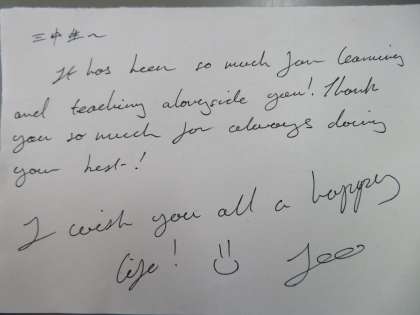 三中生~
It has been so much fun learning
and teaching alongside you! Thank
you so much for always doing
your best!
I wish you all a happy
life!